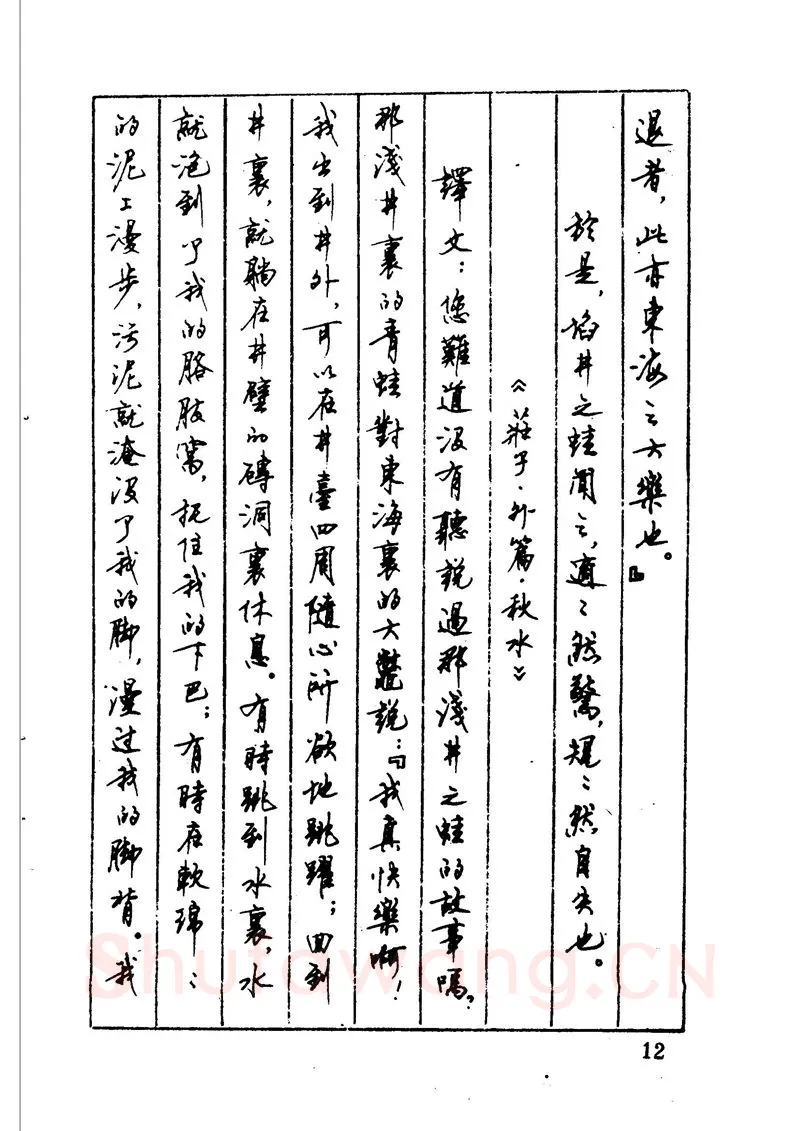 退者，此亦東海之大樂也。』
於是，埳井之蛙聞之，適〻然驚，規〻然自失也。
《莊子·外篇·秋水》
譯文：您難道没有聽説過那淺井之蛙的故事嗎？
那淺井裏的青蛙對東海裏的大鱉説：『我真快樂啊！
我出到井外，可以在井臺四周隨心所欲地跳躍；回到
井裏，就躺在井壁的磚洞裏休息。有時跳到水裏，水
就泡到了我的胳肢窩，托住我的下巴；有時在軟綿〻
的泥上漫步，污泥就淹没了我的脚，漫过我的脚背。我
Shufawang.CN
12